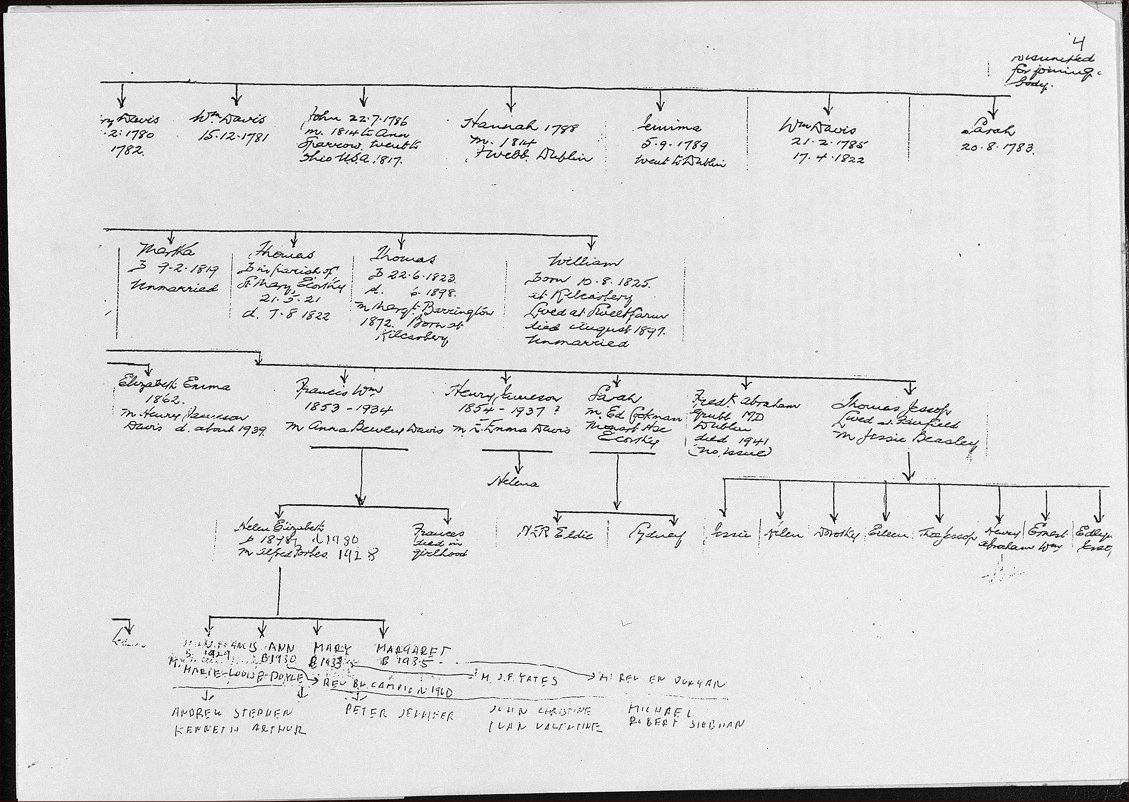 4
disunited
for joining
body.
Davis
2. 1780
1782.
Wm Davis
15.12.1781
John 22.7.1786
m. 1814 to Ann
Sparrow. went to
Ohio U.S.A. 1817.
Hannah 1788
m. 1814
J Webb. Dublin
Jemima
5.9.1789
went to Dublin
Wm Davis
21.2.1785
17.4.1822
Sarah
20.8.1783.
Martha
B 9-2-1819
Unmarried
Thomas
B in parish of
St Mary,
21.5.21
d. 7-8 1822
Thomas
B 22.6.1823.
d. 6.1898.
m Margt. Barrington
1872. Born at
Kilcasbery
William
Born 10.8.1825.
at Kilcasbery
Lived at Farm
died August 1897.
Unmarried
Elizabeth Emma
1862.
m Henry Jameson
Davis d. about 1939.
Francis Wm
1853-1934
m Anna Bewley Davis
Henry Jameson
1854-1937?
m E. Emma Davis
Sarah
m. Ed
Fredk Abraham
Grubb MD
Dublin
died 1941
(no issue)
Thomas Jessop
Lived at Fairfield
m Jessie Beasley
Helena
Helen Elizabeth
b 1878 d 1980
m Alfred Forbes 1928
Frances
died in
girlhood
Eldie
Sydney
Jessie
Helen
Dorothy
Eileen
Thos Jessop
Henry
Abraham
Ernest
Wm
FRANCIS
B 1929
M. MARIE-LOUISE DOYLE
ANN
B 1930
MARY
B 1933
MARGARET
B 1935
REV BH. CAMPION 1960
M. J.F. YATES
M. REV EN DUNGAN
ANDREW STEPHEN
KENNETH ARTHUR
PETER JENNIFER
JOHN CHRISTINE
IVAN VALENTINE
MICHAEL
ROBERT SIOBHAN